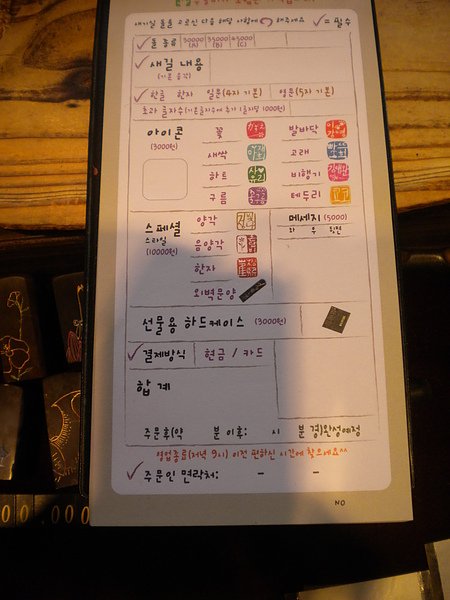 새기실 돌을 고르신 다음 해당 사항에 ○ 해주세요 ✓= 필수
✓ 돌 종류 30000 (A) 35000 (B) 45000 (C)
✓ 새길 내용
(기본 음각)
✓ 한글 한자 일문(4자 기본) 영문(5자 기본)
초과 글자수(기본글자수에 추가 1글자당 1000원)
아이콘
(3000원)
꽃
새싹
하트
구름
발바닥
고래
비행기
테두리
스페셜
스타일
(10000원)
양각
음양각
한자
외벽문양
메세지 (5000)
좌 우 뒷면
선물용 하드케이스 (3000원)
✓ 결제방식 현금 / 카드
합 계
주문후(약 분 이후: 시 분 경)완성예정
영업종료(저녁 9시) 이전 편하신 시간에 찾으세요^^
✓ 주문인 연락처: - -
NO